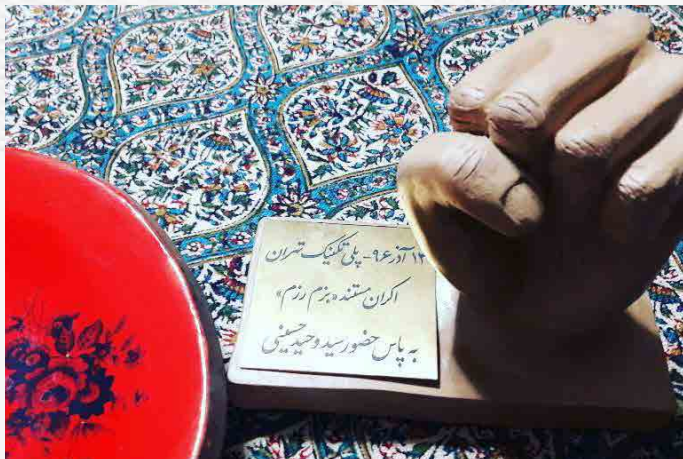 ۱۲ آذر ۹۶ - پلی تکنیک تهران
اکران مستند «بزم رزم»
به پاس حضور سید وحید حسینی